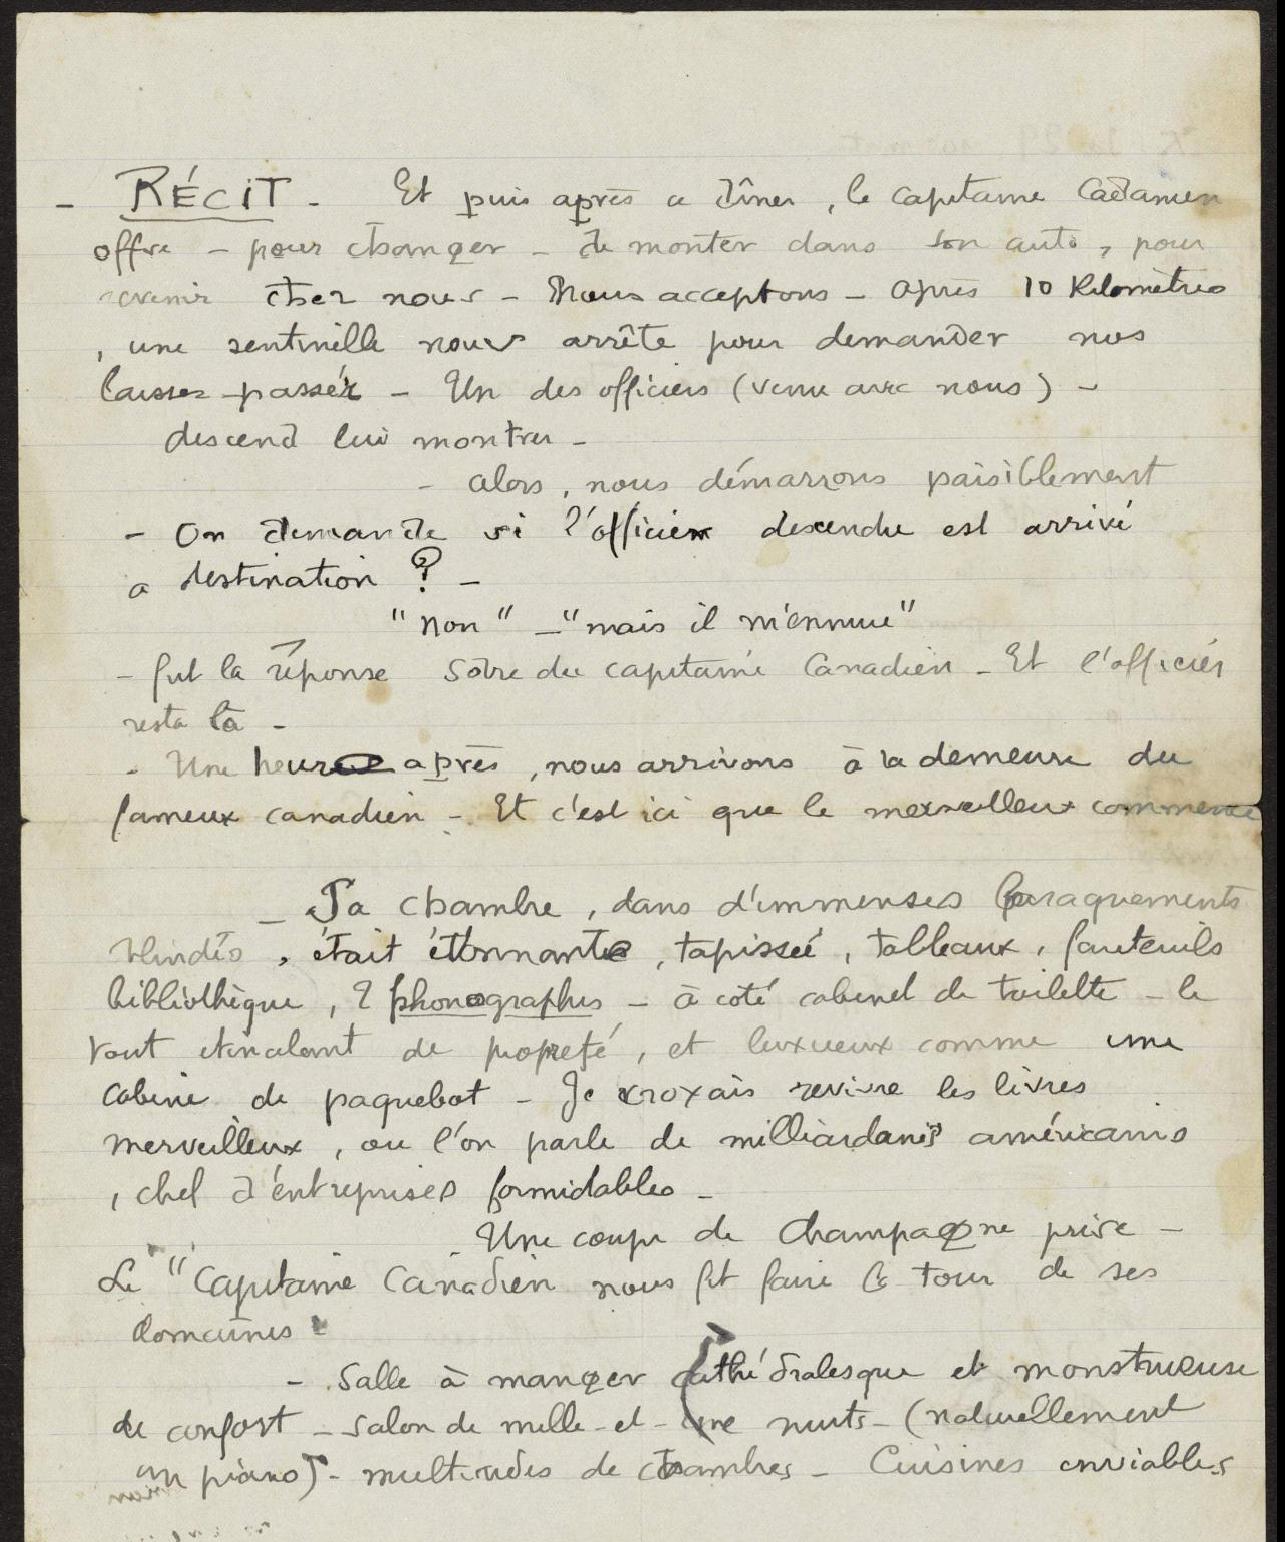 - RÉCIT - Et puis après ce dîner, le capitaine Canadien
offre - pour changer - de monter dans son auto, pour
revenir chez nous - Nous acceptons - après 10 Kilomètres
, une sentinelle nous arrête pour demander nos
laissez-passer - Un des officiers (venu avec nous) -
descend lui montrer -
- alors, nous démarrons paisiblement
- On demande si l'officier descendu est arrivé
a destination ? -
"non" - "mais il m'ennuie"
- fut la réponse sobre du capitaine Canadien - Et l'officier
resta là -
. Une heure après, nous arrivons à la demeure du
fameux canadien - Et c'est ici que le merveilleux commence
- Sa chambre, dans d'immenses baraquements
blindés, était étonnante, tapissée, tableaux, fauteuils
bibliothèque, 2 phonographes - à coté cabinet de toilette - le
tout étincelant de propreté, et luxueux comme une
cabine de paquebot - Je croyais revivre les livres
merveilleux, ou l'on parle de milliardaires américains
, chef d'entreprises formidables -
- Une coupe de Champagne prise -
Le "Capitaine Canadien nous fit faire le tour de ses
domaines :
- Salle à manger cathédralesque et monstrueuse
de confort - salon de mille-et-une nuits - (naturellement
un piano) - multitudes de chambres - Cuisines enviables